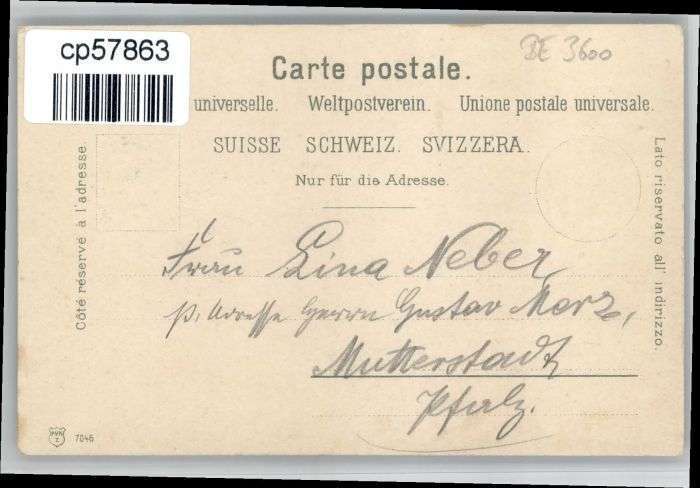 cp57863
DE 3600
Carte postale.
universelle. Weltpostverein. Unione postale universale.
SUISSE SCHWEIZ. SVIZZERA.
Nur für die Adresse.
Côté réservé à l'adresse.
Lato riservato all' indirizzo.
Frau Lina Neber
p. Adresse Herrn Gustav Merz,
Mutterstadt
Pfalz.
7046